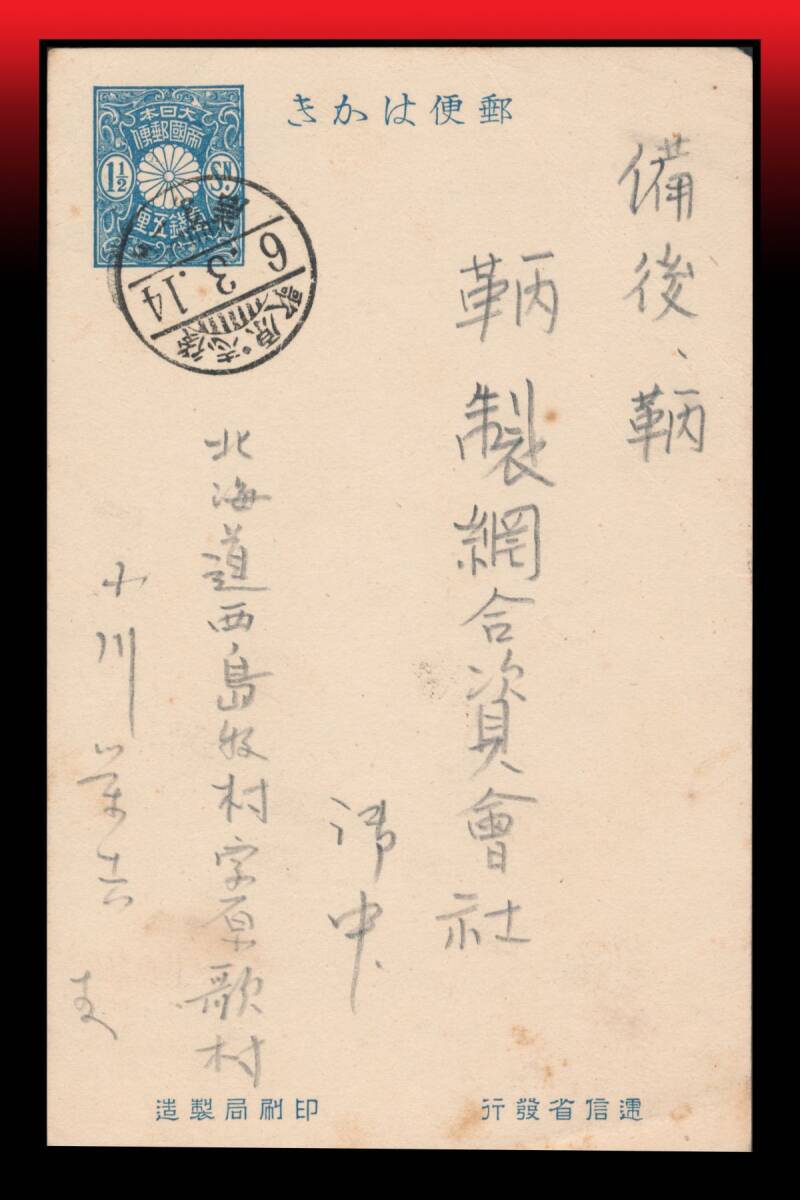 郵便はかき
大日本
帝國郵便
1½
SN.
壹錢五厘
6.3.14
後志・原歌
備後、鞆
鞆製網合資會社
御中
北海道西島牧村字原歌村
小川栄吉
遞信省發行
印刷局製造